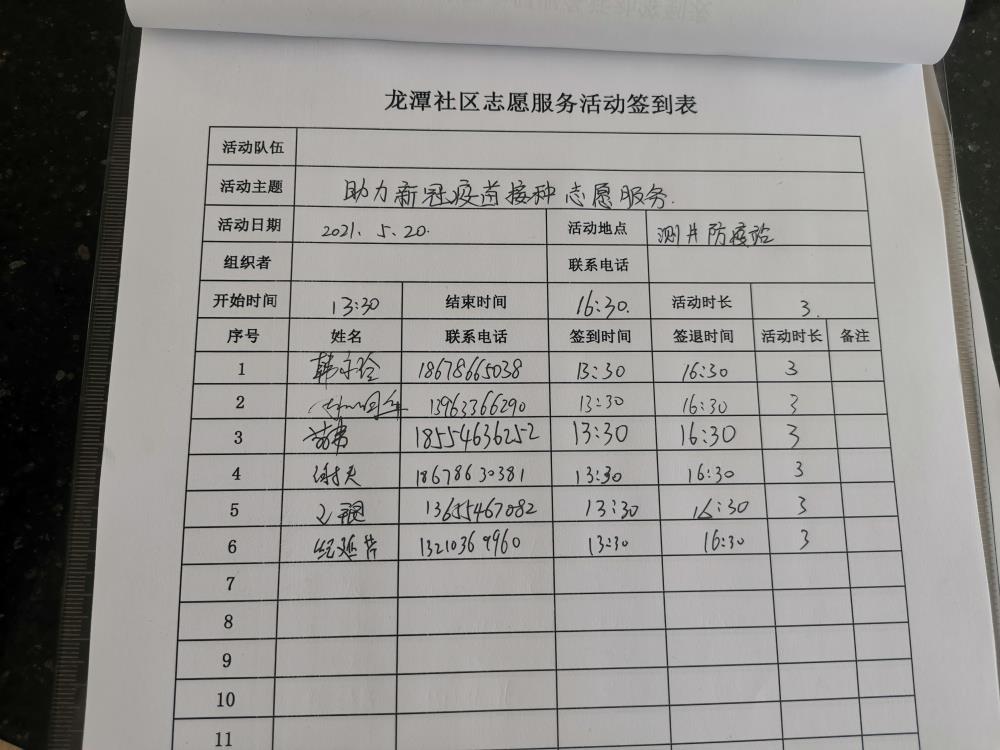 龙潭社区志愿服务活动签到表
活动队伍
活动主题 助力新冠疫苗接种志愿服务.
活动日期 2021.5.20. 活动地点 测井防疫站
组织者 联系电话
开始时间 13:30 结束时间 16:30. 活动时长 3.
序号 姓名 联系电话 签到时间 签退时间 活动时长 备注
1 18678665038 13:30 16:30 3
2 13963366290 13:30 16:30 3
3 18554636252 13:30 16:30 3
4 18678630381 13:30 16:30 3
5 13655467082 13:30 16:30 3
6 13:30 16:30 3
7
8
9
10
11